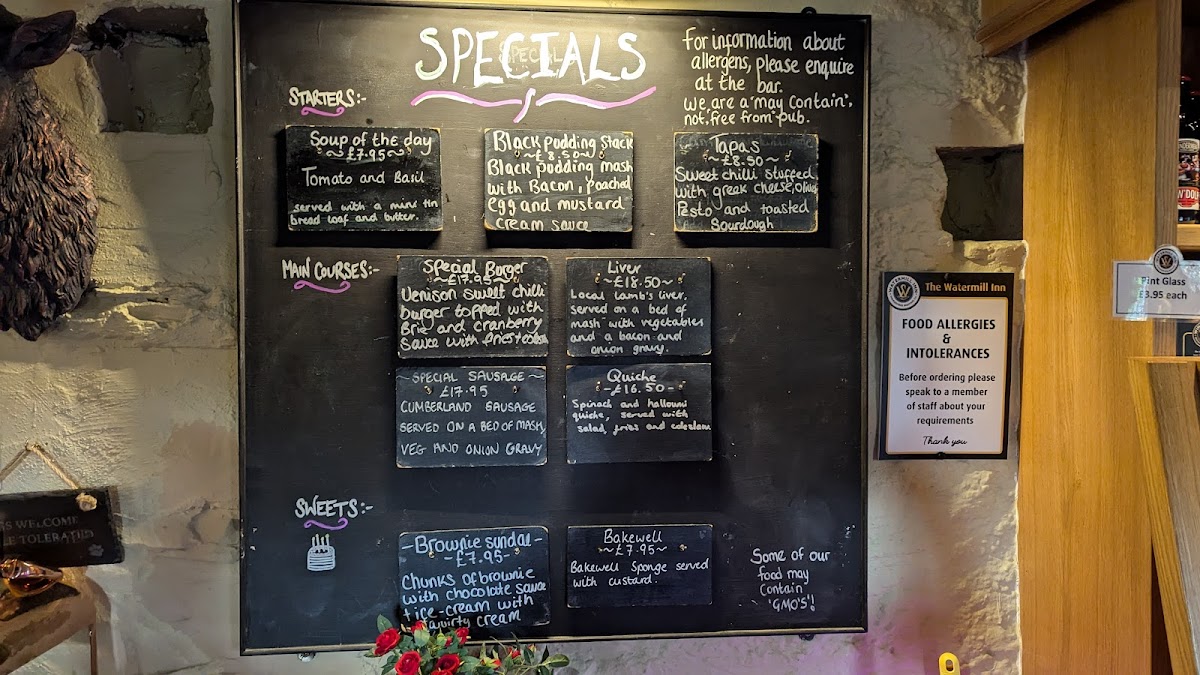 SPECIALS
For information about
allergens, please enquire
at the bar.
We are a "may contain",
not "free from" pub.
STARTERS:-
Soup of the day
~£7.95~
Tomato and Basil
served with a mini tin
bread loaf and butter.
Black pudding Stack
~£8.50~
Black pudding mash
with Bacon, poached
egg and mustard
cream sauce
Tapas
~£8.50~
Sweet chilli stuffed
with greek cheese, olives
Pesto and toasted
Sourdough
MAIN COURSES:-
Special Burger
~£17.95~
Venison sweet chilli
burger topped with
Brie and cranberry
Sauce with fries + coleslaw
Liver
~£18.50~
Local lamb's liver,
served on a bed of
mash with vegetables
and a bacon and
onion gravy.
~SPECIAL SAUSAGE~
£17.95
CUMBERLAND SAUSAGE
SERVED ON A BED OF MASH,
VEG AND ONION GRAVY
Quiche
~£16.50~
Spinach and halloumi
quiche, served with
salad, fries and coleslaw
SWEETS:-
-Brownie sundae-
-£7.95-
Chunks of brownie
with chocolate sauce
+ ice-cream with
squirty cream
Bakewell
~£7.95~
Bakewell Sponge served
with custard.
Some of our
food may
Contain
'GMO'S'!
The Watermill Inn
FOOD ALLERGIES
&
INTOLERANCES
Before ordering please
speak to a member
of staff about your
requirements
Thank you
Pint Glass
£3.95 each
WELCOME
TOLERATED